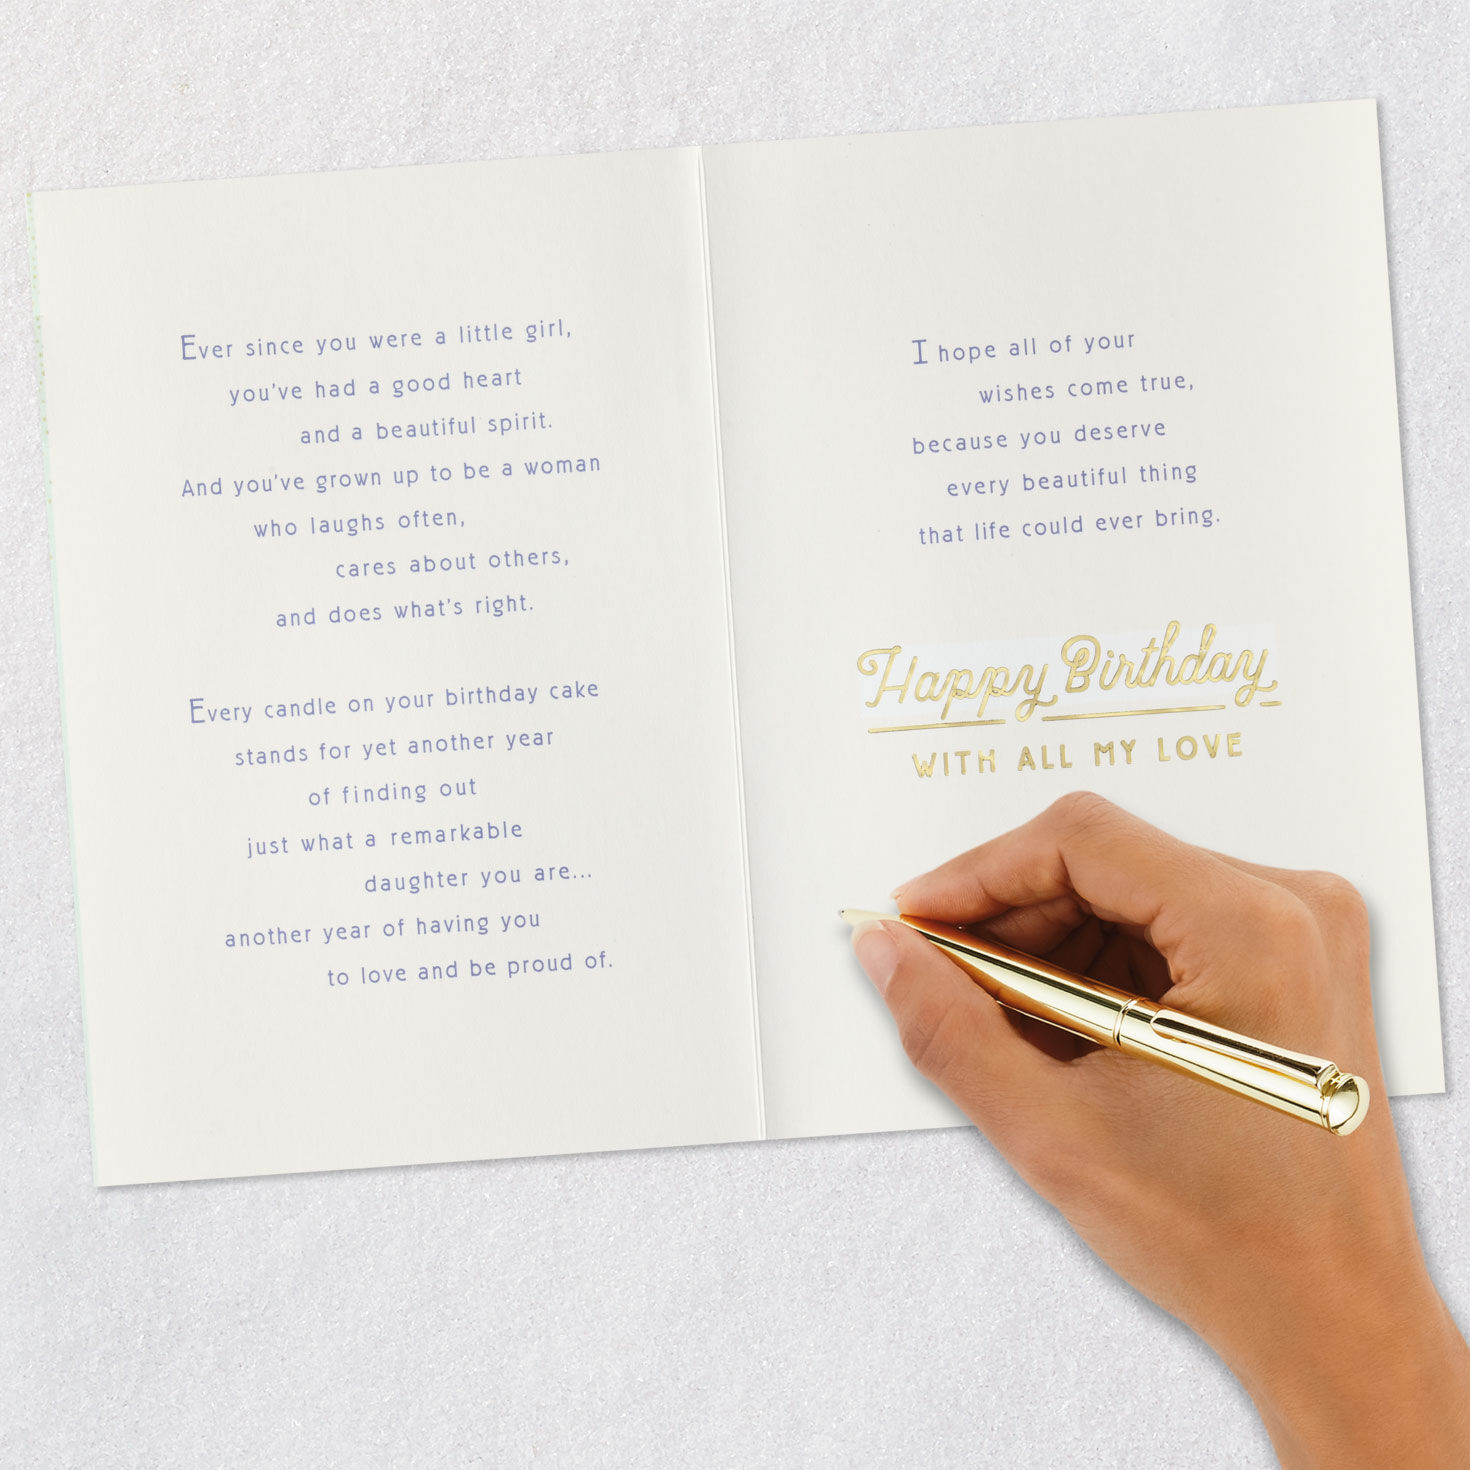 Ever since you were a little girl,
you've had a good heart
and a beautiful spirit.
And you've grown up to be a woman
who laughs often,
cares about others,
and does what's right.
Every candle on your birthday cake
stands for yet another year
of finding out
just what a remarkable
daughter you are...
another year of having you
to love and be proud of.
I hope all of your
wishes come true,
because you deserve
every beautiful thing
that life could ever bring.
Happy Birthday
WITH ALL MY LOVE